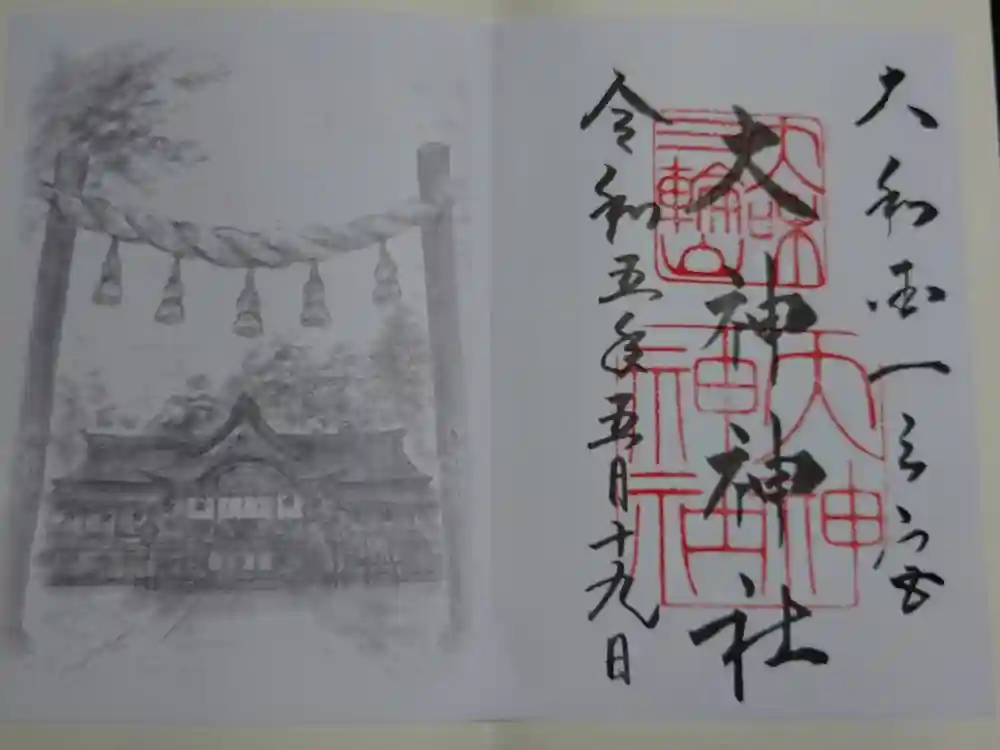 大和国一之宮
大神神社
令和五年五月十九日
大和
三輪山
大神
神社